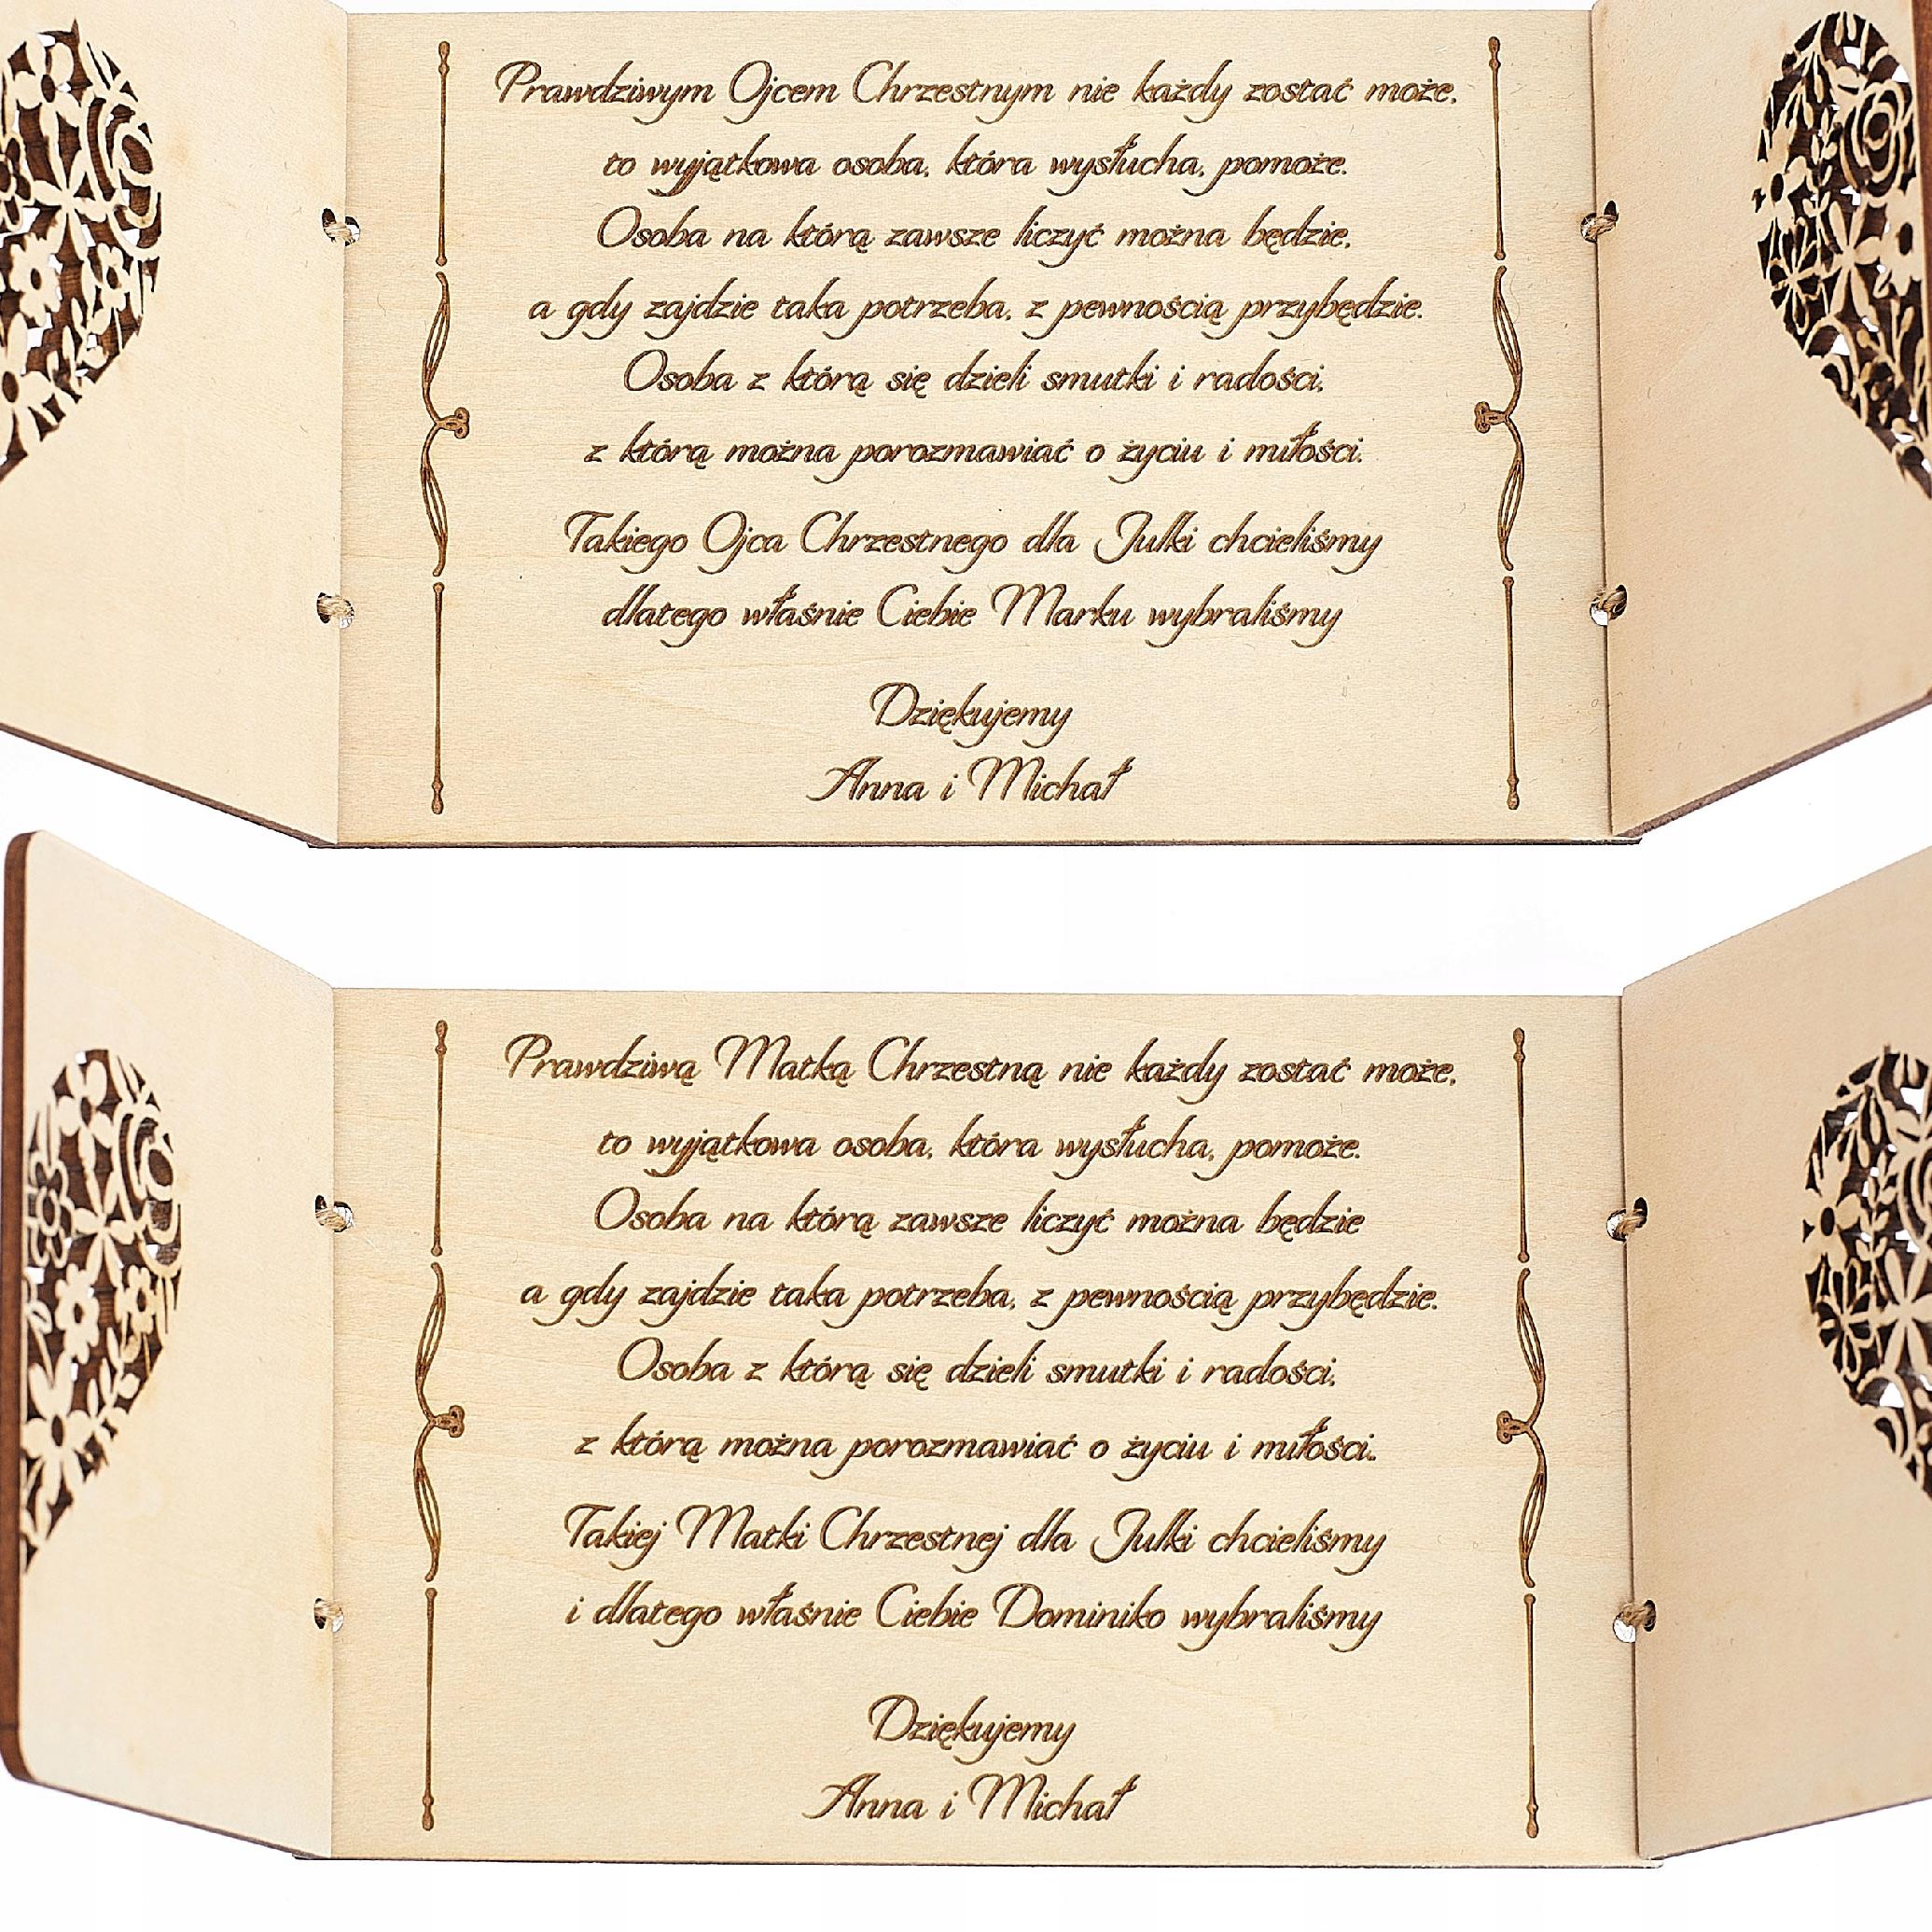 Prawdziwym Ojcem Chrzestnym nie każdy zostać może,
to wyjątkowa osoba, która wysłucha, pomoże.
Osoba na którą zawsze liczyć można będzie,
a gdy zajdzie taka potrzeba, z pewnością przybędzie.
Osoba z którą się dzieli smutki i radości,
z którą można porozmawiać o życiu i miłości.
Takiego Ojca Chrzestnego dla Julki chcieliśmy
dlatego właśnie Ciebie Marku wybraliśmy
Dziękujemy
Anna i Michał
Prawdziwą Matką Chrzestną nie każdy zostać może,
to wyjątkowa osoba, która wysłucha, pomoże.
Osoba na którą zawsze liczyć można będzie
a gdy zajdzie taka potrzeba, z pewnością przybędzie.
Osoba z którą się dzieli smutki i radości,
z którą można porozmawiać o życiu i miłości..
Takiej Matki Chrzestnej dla Julki chcieliśmy
i dlatego właśnie Ciebie Dominiko wybraliśmy
Dziękujemy
Anna i Michał